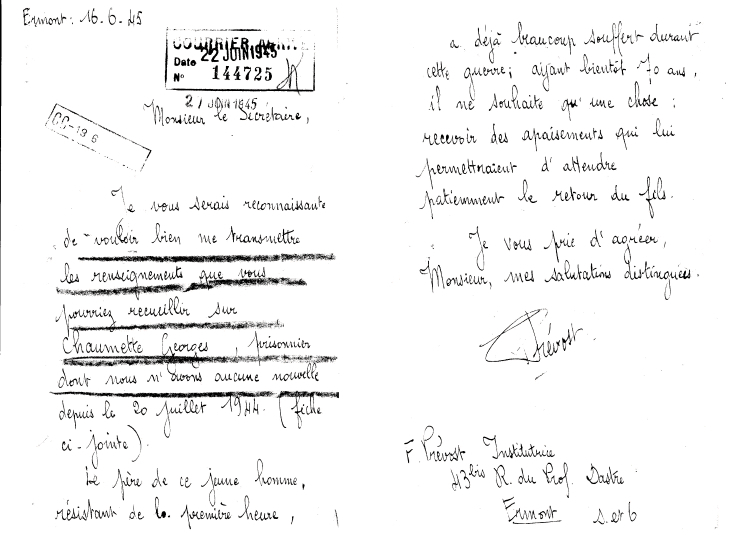 Ermont : 16-6-45
COURRIER ARRIVÉ
Date 22 JUIN 1945
N° 144725
21 JUIN 1945
Monsieur le Secrétaire,
CC-19 6
Je vous serais reconnaissante
de vouloir bien me transmettre
les renseignements que vous
pourriez recueillir sur
Chaumette Georges, prisonnier
dont nous n'avons aucune nouvelle
depuis le 20 juillet 1944. (fiche
ci-jointe).
Le père de ce jeune homme,
résistant de la première heure,
a déjà beaucoup souffert durant
cette guerre; ayant bientôt 70 ans,
il ne souhaite qu'une chose :
recevoir des apaisements qui lui
permettraient d'attendre
patiemment le retour du fils.
Je vous prie d'agréer,
Monsieur, mes salutations distinguées.
Prévost
F. Prévost Institutrice
43bis R. du Prof. Dastre
Ermont S. et O